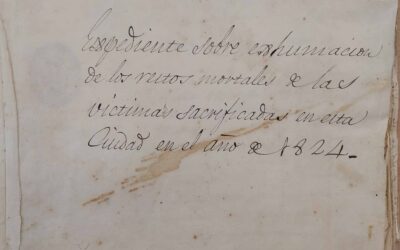 Expediente sobre exhumacion
de los restos mortales de las
victimas sacrificadas en esta
Ciudad en el año de 1824.-